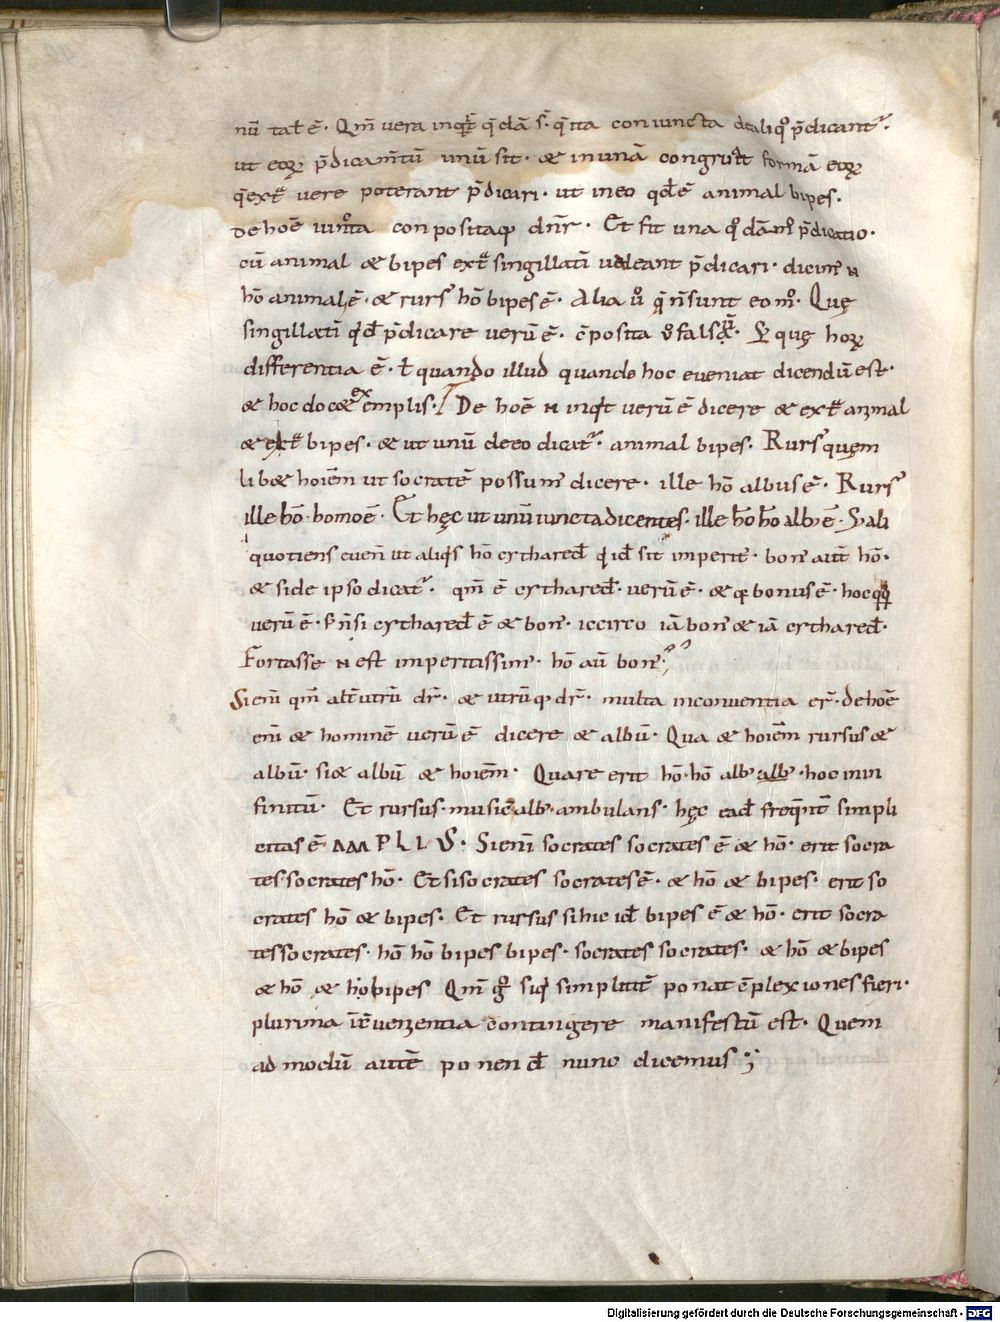 nū tal̄ ē. Qm̄ vera inq̄t q̄dā s̄. q̄ ita coniuncta de aliq° p̄dicant᷑.
ut eoꝝ p̄dicam̄tū unū sit. & in unā congruat formā eoꝝ
q̄ ext̄ vere poterant p̄dicari. ut in eo qd̄ ē animal bipes.
de hoē iuncta conpositaq; dn̄r. Et fit una q°dām° p̄dicatio.
cū animal & bipes ext̄ singillatī valeant p̄dicari. dicim᷒ n̄
hō animal ē. & rurs᷒ hō bipes ē. Alia ū q̄ n̄ sunt eo m°. Quę
singillatī qd̄ p̄dicare verū ē. cōposita falsū. quę horꝝ
differentia ē. ł quando illud quando hoc eveniat dicendū est.
& hoc doc& exemplis. De hoē n̄ inqt verū ē dicere & ext̄ animal
& ext̄ bipes. & ut unū de eo dicat᷑. animal bipes. Rurs᷒ quem
lib& hoiēm ut socratē possum᷒ dicere. ille hō albus ē. Rurs᷒
ille hō. homo ē. Et hęc ut unū iuncta dicentes. ille hō hō alb᷒ ē. S; ali
quotiens even̄ ut aliq̇s hō cythared᷒ qid̄ sit imperit᷒. bon᷒ aut̄ hō.
& si de ipso dicat᷑. qm̄ ē cythared᷒. verū ē. & q; bonus ē. hoc qq;
verū ē. s; n̄ si cythared᷒ ē & bon᷒. iccirco iā bon᷒ & iā cythared᷒.
Fortasse n̄ est imperitissim᷒. hō aū bon᷒.
Si enī qm̄ alt̄utrū dr̄. & utrūq; dr̄. multa inconvenientia er̄. de hoē
enī & hominē verū ē dicere & albū. Qua & hoiēm rursus &
albū. si & albū & hoiēm. Quare erit hō. hō alb᷒ alb᷒. hoc in in
finitū. Et rursus. music᷒ alb᷒ ambulans. hęc ead̄ freq̄nt̄ simpli
citas ē AMPLIUS. Si enī socrates socrates ē & hō. erit socra
tes socrates hō. Et si socrates socrates ē. & hō & bipes. erit so
crates hō & bipes. Et rursus si hic id̄ bipes ē & hō. erit socra
tes socrates. hō hō bipes bipes. socrates socrates. & hō & bipes
& hō & hō bipes Qm̄ g° siq̇s simplicit̄ ponat cōplexiones fieri.
plurima contingere manifestū est. Quem
ad modū autē ponend̄ nunc dicemus
Digitalisierung gefördert durch die Deutsche Forschungsgemeinschaft - DFG